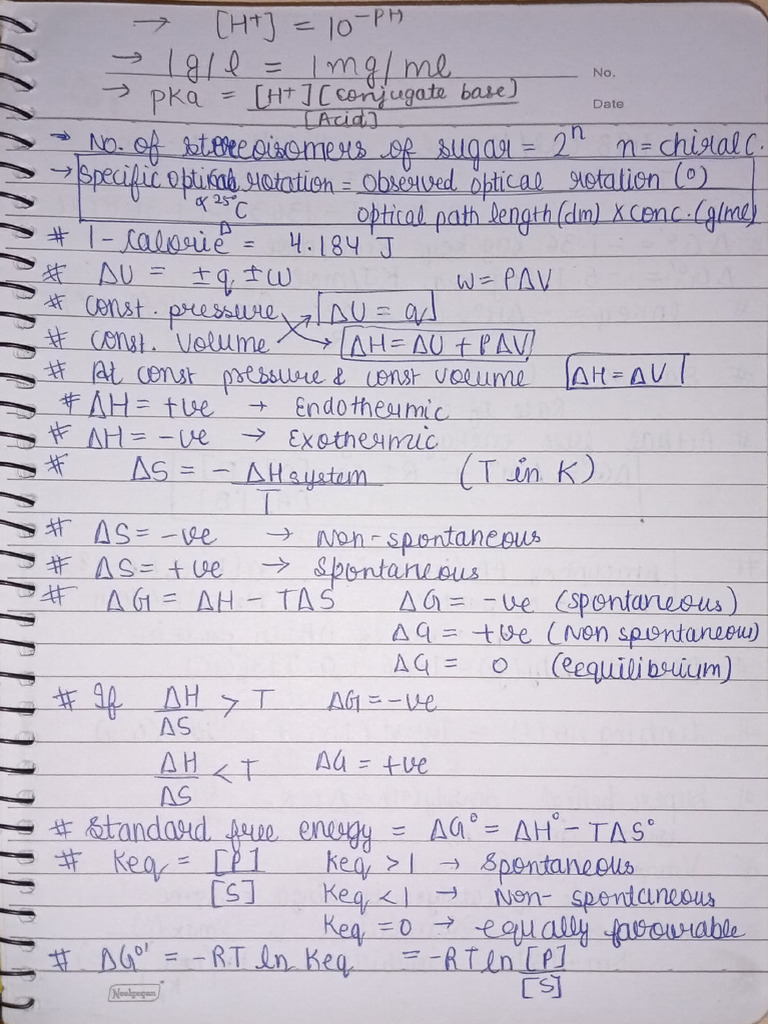 → [H+] = 10^-PH
→ 1g/l = 1mg/ml
No.
→ pKa = [H+][conjugate base] / [Acid]
Date
→ No. of stereoisomers of sugar = 2^n n = chiral C.
→ Specific optical rotation = observed optical rotation (0) / optical path length (dm) × conc. (g/ml)
α 25° C D
# 1-calorie = 4.184 J
# ΔU = ±q ±w w = PΔV
# const. pressure ΔU = q
# const. volume ΔH = ΔU + PΔV
# At const pressure & const volume ΔH = ΔU
# ΔH = +ve → Endothermic
# ΔH = -ve → Exothermic
# ΔS = - ΔHsystem / T (T in K)
# ΔS = -ve → Non-spontaneous
# ΔS = +ve → Spontaneous
# ΔG = ΔH - TΔS ΔG = -ve (spontaneous)
ΔG = +ve (Non spontaneous)
ΔG = 0 (eequilibrium)
# If ΔH / ΔS > T ΔG = -ve
ΔH / ΔS < T ΔG = +ve
# Standard free energy = ΔG° = ΔH° - TΔS°
# Keq = [P] / [S] Keq > 1 → Spontaneous
Keq < 1 → Non-spontaneous
Keq = 0 → equally favourable
# ΔG°' = -RT ln Keq = -RT ln [P] / [S]
Neelgagan